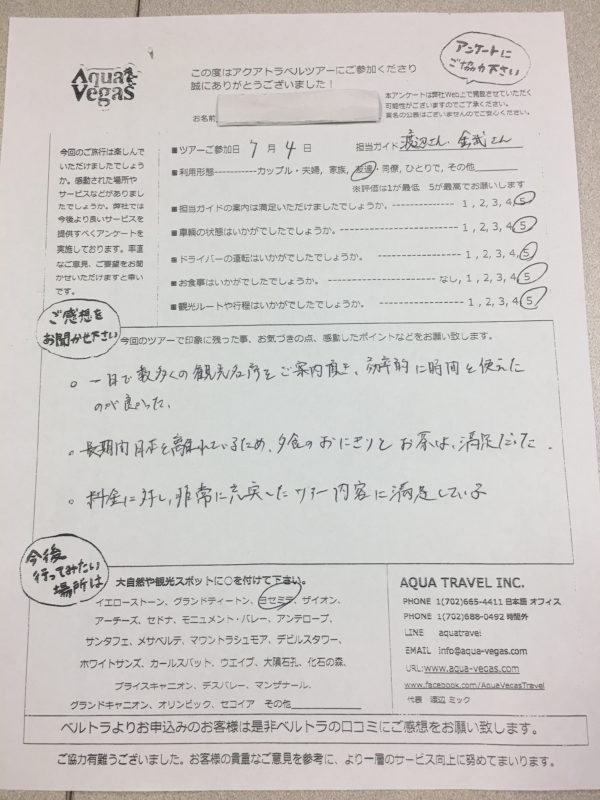 Aqua
Vegas
この度はアクアトラベルツアーにご参加くださり
誠にありがとうございました！
アンケートに
ご協力下さい
本アンケートは弊社Web上で掲載させていただく
可能性がございますのでご了承ください。
実名の公表はございませんのでご安心ください。
お名前
今回のご旅行は楽しんで
いただけましたでしょう
か。感動された場所や
サービスなどがありまし
たでしょうか。弊社では
今後より良いサービスを
提供すべくアンケートを
実施しております。率直
なご意見、ご要望をお聞
かせいただけますと幸い
です。
■ツアーご参加日 7 月 4 日 担当ガイド 渡辺さん 金武さん
■利用形態-----------カップル・夫婦, 家族, 友達・同僚, ひとりで, その他
※評価は1が最低 5が最高でお願いします
■担当ガイドの案内は満足いただけましたでしょうか。 ---------- 1, 2, 3, 4, 5
■車輌の状態はいかがでしたでしょうか。 ---------- 1, 2, 3, 4, 5
■ドライバーの運転はいかがでしたでしょうか。 ---------- 1, 2, 3, 4, 5
■お食事はいかがでしたでしょうか。 ---------- なし, 1, 2, 3, 4, 5
■観光ルートや行程はいかがでしたでしょうか。 ---------- 1, 2, 3, 4, 5
ご感想を
お聞かせ下さい
今回のツアーで印象に残った事、お気づきの点、感動したポイントなどをお願い致します。
。一日で数多くの観光名所をご案内頂き、効率的に時間を使えた
のが良かった、
。長期間日本を離れているため、夕食のおにぎりとお茶は、満足だった.
。料金に対し、非常に充実したツアー内容に満足している
今後
行ってみたい
場所は
大自然や観光スポットに○を付けて下さい。
イエローストーン、グランドティートン、ヨセミテ、ザイオン、
アーチーズ、セドナ、モニュメント・バレー、アンテロープ、
サンタフェ、メサベルテ、マウントラシュモア、デビルスタワー、
ホワイトサンズ、カールスバット、ウエイブ、大隕石孔、化石の森、
ブライスキャニオン、デスバレー、マンザナール、
グランドキャニオン、オリンピック、セコイア その他
AQUA TRAVEL INC.
PHONE 1(702)665-4411 日本語 オフィス
PHONE 1(702)688-0492 時間外
LINE aquatravel
EMAIL info@aqua-vegas.com
URL:www.aqua-vegas.com
www.facebook.com/AquaVegasTravel
代表 渡辺 ミック
ベルトラよりお申込みのお客様は是非ベルトラの口コミにご感想をお願い致します。
ご協力有難うございました。お客様の貴重なご意見を参考に、より一層のサービス向上に努めてまいります。